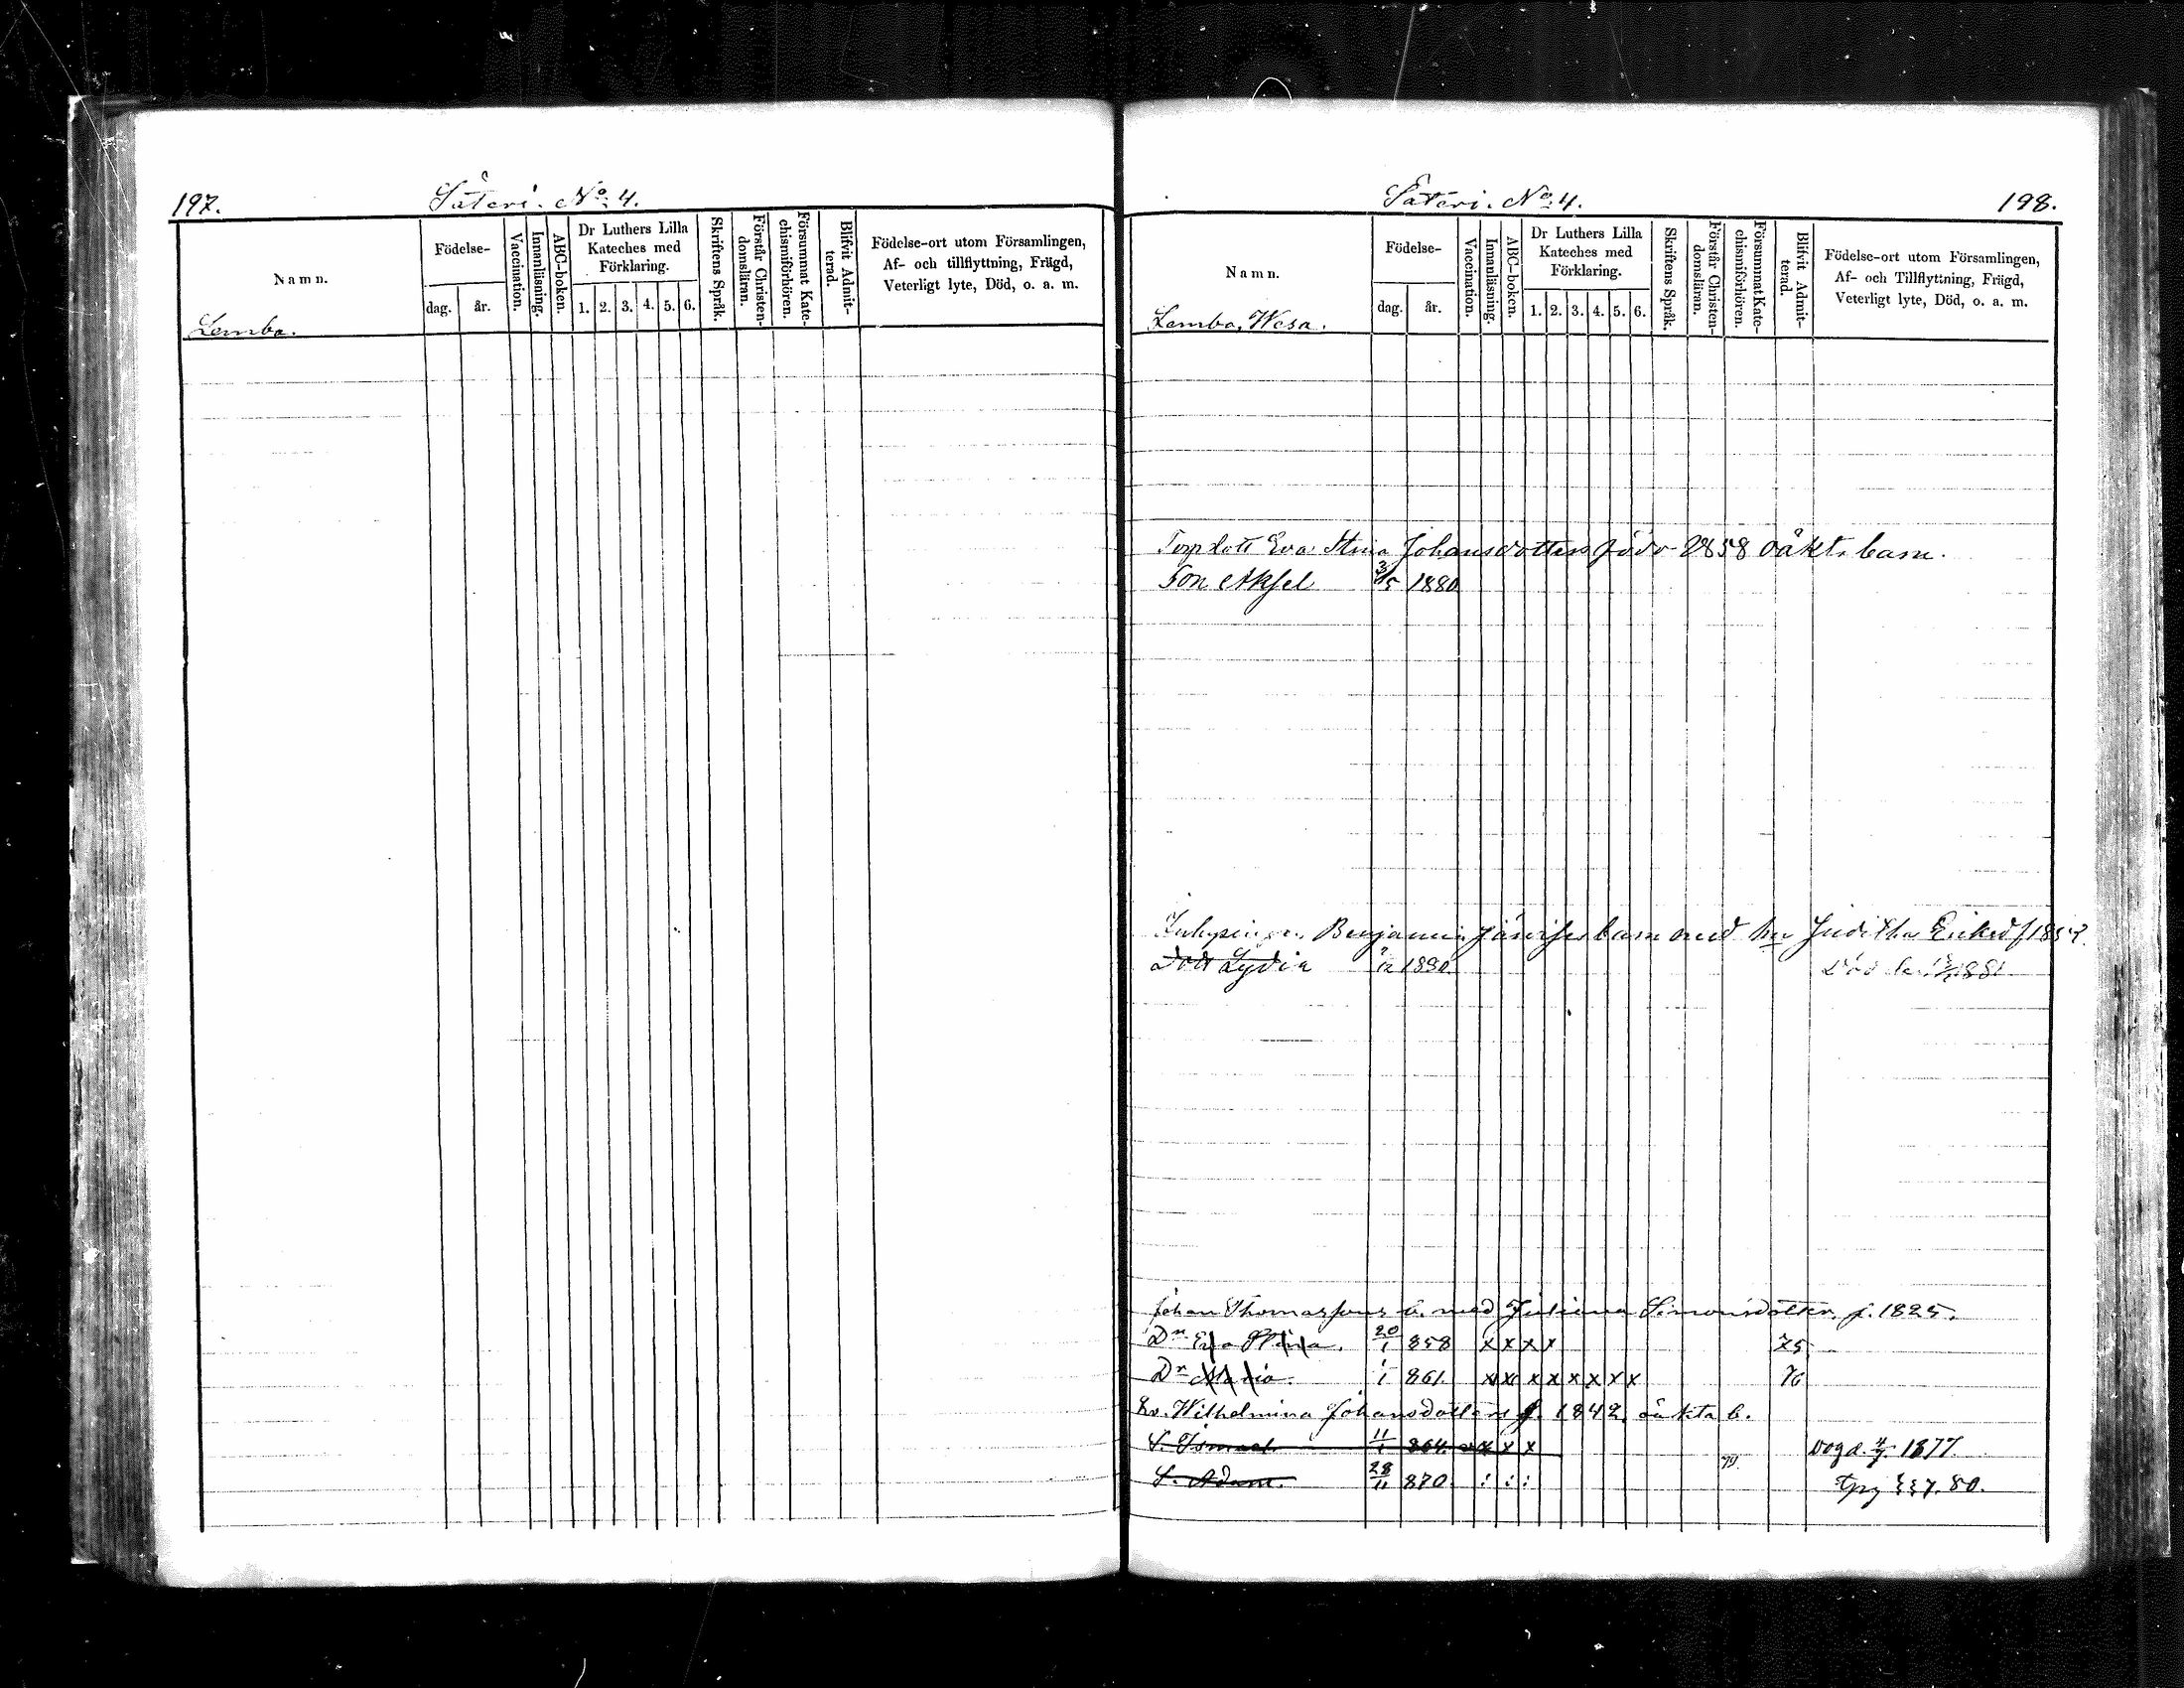 197.
Säteri. No 4.
Namn.
Födelse-
dag.
år.
Vaccination.
Innanläsning.
ABC-boken.
Dr Luthers Lilla
Kateches med
Förklaring.
1. 2. 3. 4. 5. 6.
Skriftens Språk.
Förstår Christen-
domsläran.
Försummat Kate-
chismiförhören.
Blifvit Admit-
terad.
Födelse-ort utom Församlingen,
Af- och tillflyttning, Frägd,
Veterligt lyte, Död, o. a. m.
Lembo.
Säteri. No 4.
198.
Namn.
Födelse-
dag.
år.
Vaccination.
Innanläsning.
ABC-boken.
Dr Luthers Lilla
Kateches med
Förklaring.
1. 2. 3. 4. 5. 6.
Skriftens Språk.
Förstår Christen-
domsläran.
Försummat Kate-
chismiförhören.
Blifvit Admit-
terad.
Födelse-ort utom Församlingen,
Af- och Tillflyttning, Frägd,
Veterligt lyte, Död, o. a. m.
Lembo, Wesa.
Eva Stina Johansdotters född 1858 oäkta barn.
Son Aksel 3/5 1880
Benjamin barn med hu Juditha
Dott Lydia 1880 Död 1881
Johan Thomassons b. med Juliana Simonsdotter, f. 1825.
Dr Eva Stina. 20/1 858 x x x x 75
Dr Maria. 861. x x x x x x x x 76
Wilhelmina Johansdotters f. 1842. oäkta b.
S. Ismael. 11/1 864. x x x 1877.
S. Adam. 28/11 870. : : : 79. 80.